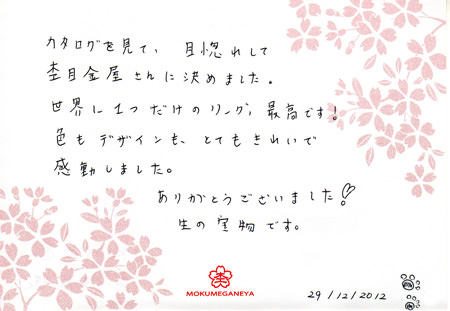 カタログを見て、目惚れして
杢目金屋さんに決めました。
世界に1つだけのリング、最高です!
色もデザインも、とてもきれいで
感動しました。
ありがとうございました!
生の宝物です。
MOKUMEGANEYA
29/12/2012